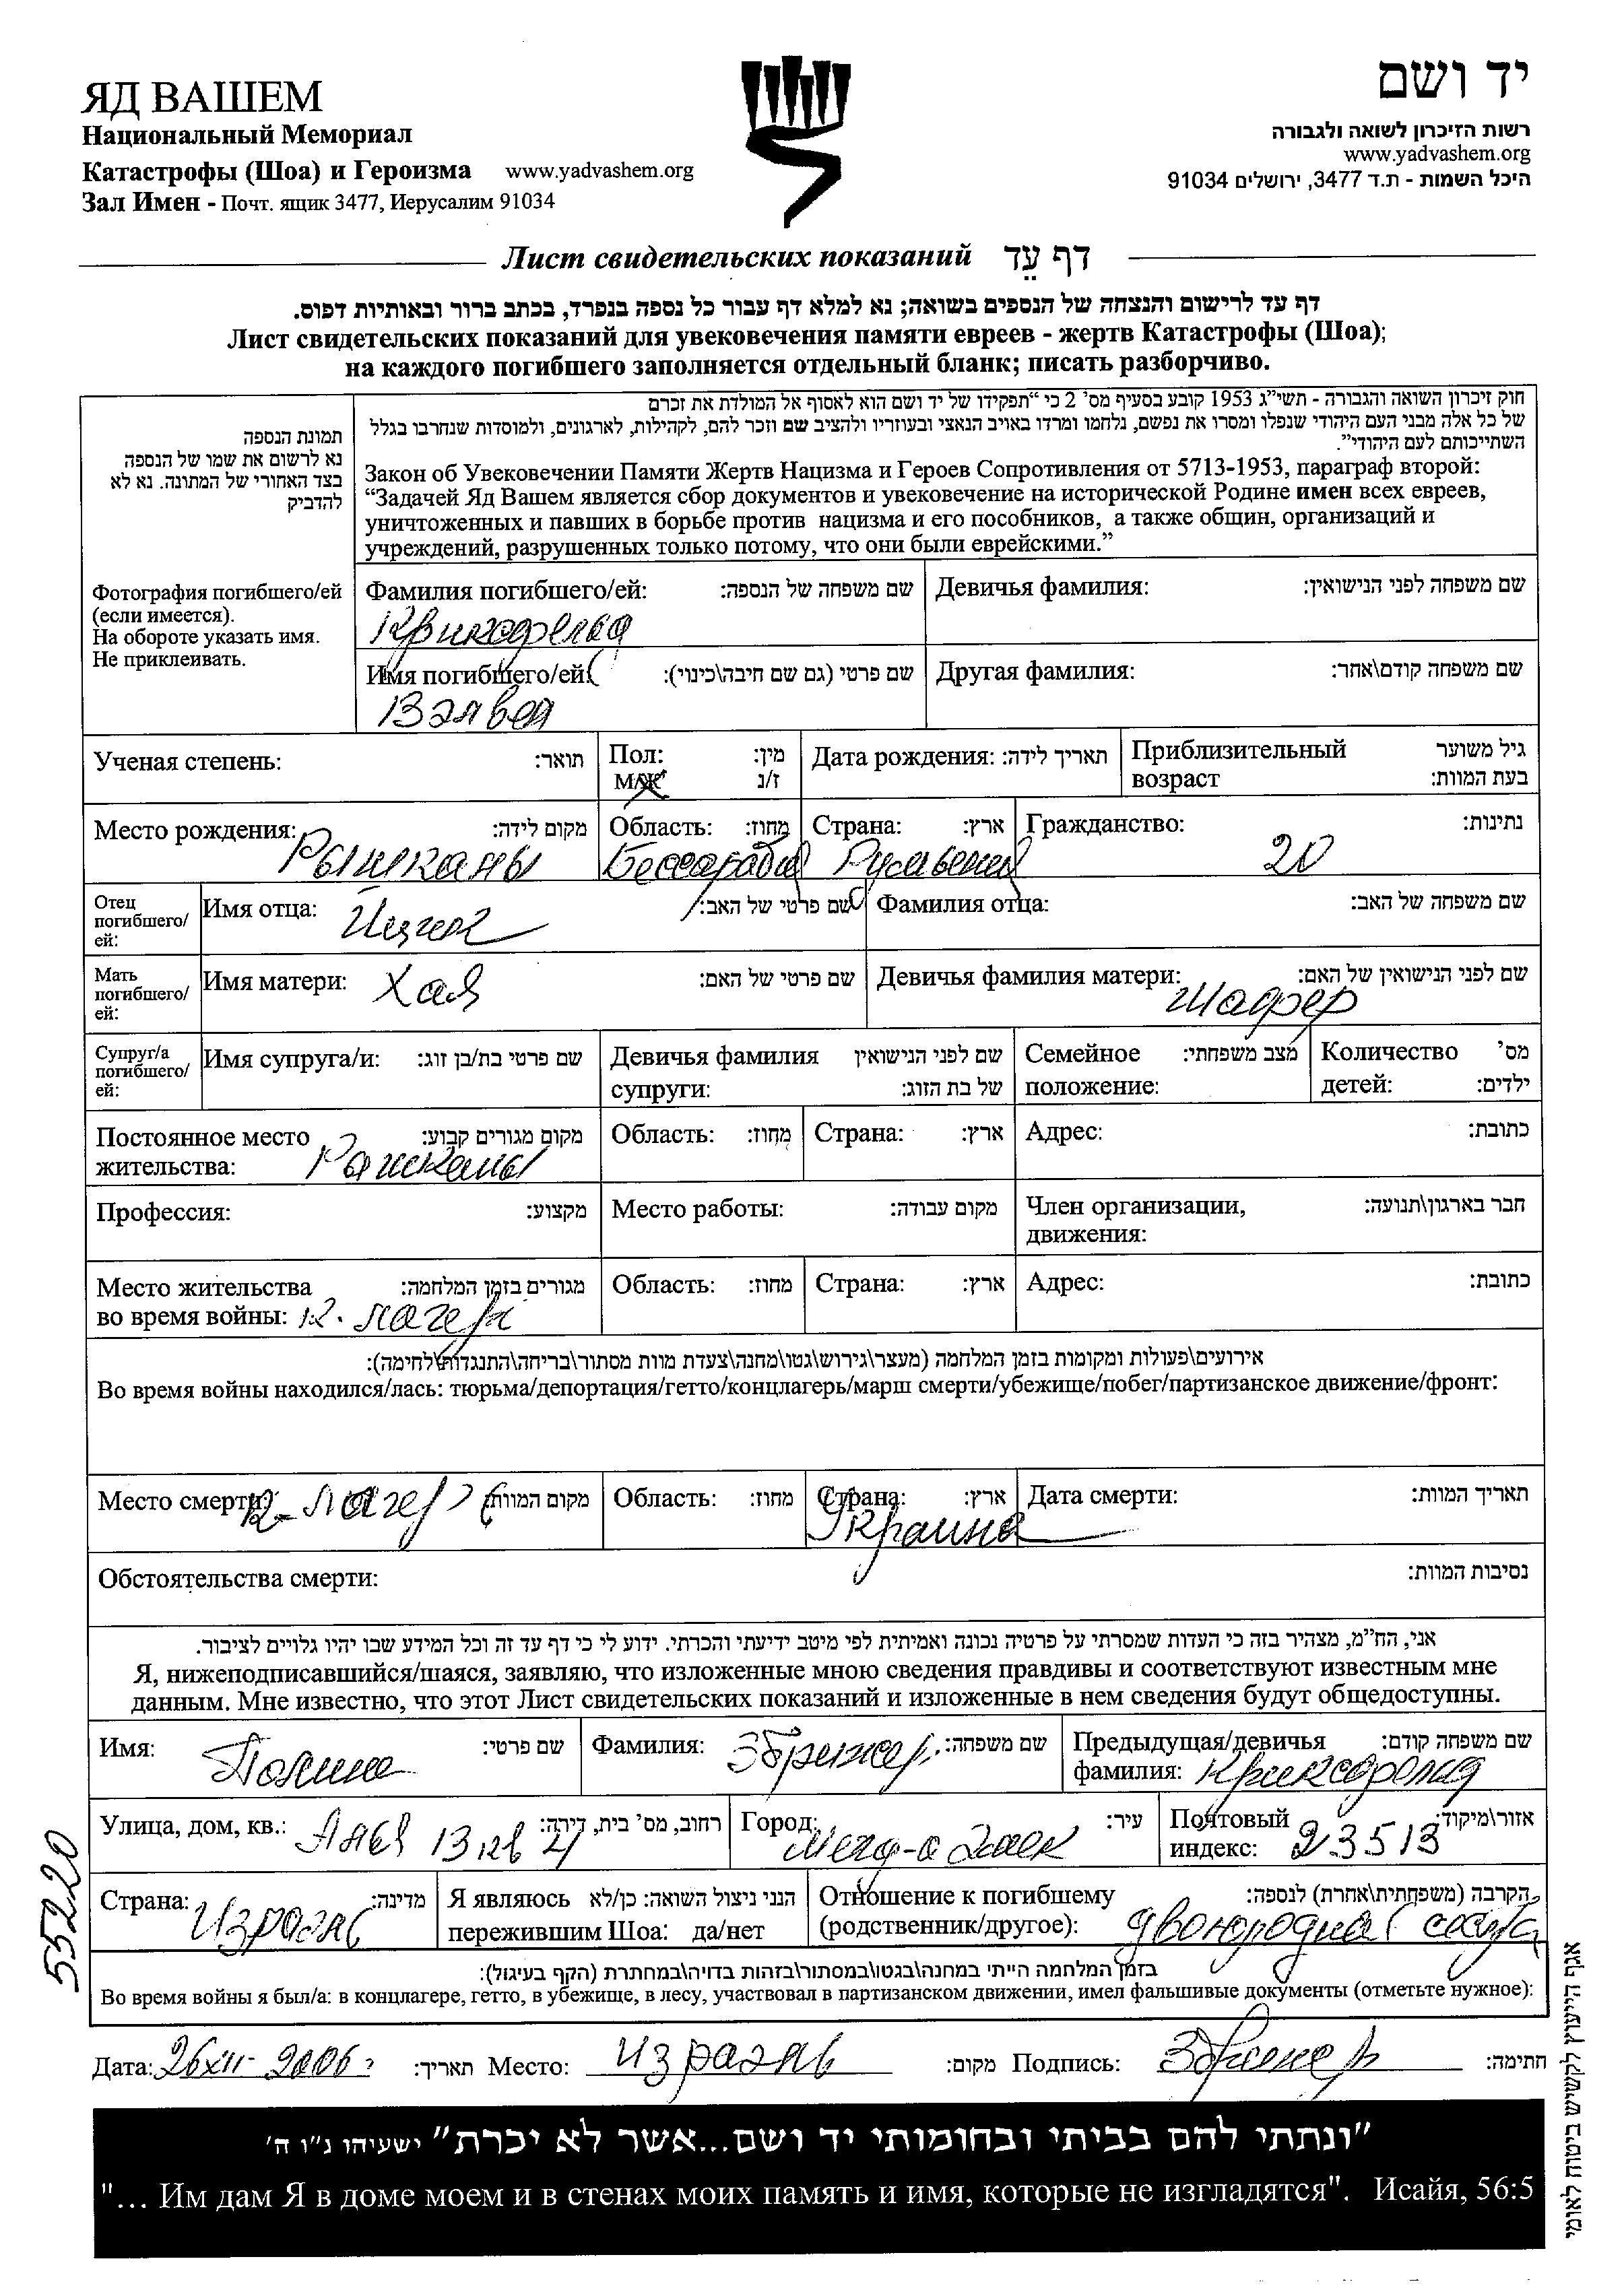 ЯД ВАШЕМ
Национальный Мемориал
Катастрофы (Шоа) и Героизма www.yadvashem.org
Зал Имен - Почт. ящик 3477, Иерусалим 91034
יד ושם
רשות הזיכרון לשואה ולגבורה
www.yadvashem.org
היכל השמות - ת.ד 3477, ירושלים 91034
Лист свидетельских показаний דף עֵד
דף עד לרישום והנצחה של הנספים בשואה; נא למלא דף עבור כל נספה בנפרד, בכתב ברור ובאותיות דפוס.
Лист свидетельских показаний для увековечения памяти евреев - жертв Катастрофы (Шоа);
на каждого погибшего заполняется отдельный бланк; писать разборчиво.
תמונת הנספה
נא לרשום את שמו של הנספה
בצד האחורי של המתונה. נא לא
להדביק
Фотография погибшего/ей
(если имеется).
На обороте указать имя.
Не приклеивать.
חוק זיכרון השואה והגבורה - תשי"ג 1953 קובע בסעיף מס' 2 כי "תפקידו של יד ושם הוא לאסוף אל המולדת את זכרם
של כל אלה מבני העם היהודי שנפלו ומסרו את נפשם, נלחמו ומרדו באויב הנאצי ובעוזריו ולהציב שם וזכר להם, לקהילות, לארגונים, ולמוסדות שנחרבו בגלל
השתייכותם לעם היהודי".
Закон об Увековечении Памяти Жертв Нацизма и Героев Сопротивления от 5713-1953, параграф второй:
"Задачей Яд Вашем является сбор документов и увековечение на исторической Родине имен всех евреев,
уничтоженных и павших в борьбе против нацизма и его пособников, а также общин, организаций и
учреждений, разрушенных только потому, что они были еврейскими."
Фамилия погибшего/ей: שם משפחה של הנספה: Девичья фамилия: שם משפחה לפני הנישואין:
Криксфельд
Имя погибшего/ей: שם פרטי (גם שם חיבה\כינוי): Другая фамилия: שם משפחה קודם\אחר:
Вэлвел
Ученая степень: תואר: Пол: מין: М/Ж ז/נ Дата рождения: תאריך לידה: Приблизительный возраст גיל משוער בעת המוות:
Место рождения: מקום לידה: Область: מחוז: Страна: ארץ: Гражданство: נתינות:
Рышканы Бессарабия Румыния 20
Отец погибшего/ей: Имя отца: שם פרטי של האב: Фамилия отца: שם משפחה של האב:
Ицик
Мать погибшего/ей: Имя матери: שם פרטי של האם: Девичья фамилия матери: שם לפני הנישואין של האם:
Хая Шафер
Супруг/а погибшего/ей: Имя супруга/и: שם פרטי בת/בן זוג: Девичья фамилия супруги: שם לפני הנישואין של בת הזוג: Семейное положение: מצב משפחתי: Количество детей: מס' ילדים:
Постоянное место жительства: מקום מגורים קבוע: Область: מחוז: Страна: ארץ: Адрес: כתובת:
Рышканы
Профессия: מקצוע: Место работы: מקום עבודה: Член организации, движения: חבר בארגון\תנועה:
Место жительства во время войны: מגורים בזמן המלחמה: Область: מחוז: Страна: ארץ: Адрес: כתובת:
к. лагерь
אירועים\פעולות ומקומות בזמן המלחמה (מעצר\גירוש\גטו\מחנה\צעדת מוות מסתור\בריחה\התנגדות\לחימה):
Во время войны находился/лась: тюрьма/депортация/гетто/концлагерь/марш смерти/убежище/побег/партизанское движение/фронт:
Место смерти: מקום המוות: Область: מחוז: Страна: ארץ: Дата смерти: תאריך המוות:
к-лагерь Украина
Обстоятельства смерти: נסיבות המוות:
אני, הח"מ, מצהיר בזה כי העדות שמסרתי על פרטיה נכונה ואמיתית לפי מיטב ידיעתי והכרתי. ידוע לי כי דף עד זה וכל המידע שבו יהיו גלויים לציבור.
Я, нижеподписавшийся/шаяся, заявляю, что изложенные мною сведения правдивы и соответствуют известным мне
данным. Мне известно, что этот Лист свидетельских показаний и изложенные в нем сведения будут общедоступны.
Имя: Полина שם פרטי: Фамилия: Збрижер שם משפחה: Предыдущая/девичья фамилия: Криксфельд שם משפחה קודם:
Улица, дом, кв.: 13 кв 4 רחוב, מס' בית, דירה: Город: Мигд-а Эмек עיר: Почтовый индекс: 23513 אזור\מיקוד:
Страна: Израэль מדינה: Я являюсь пережившим Шоа: да/нет הנני ניצול השואה: כן/לא Отношение к погибшему (родственник/другое): двоюродная сестра הקרבה (משפחתית\אחרת) לנספה:
בזמן המלחמה הייתי במחנה\בגטו\במסתור\בזהות בדויה\במחתרת (הקף בעיגול):
Во время войны я был/а: в концлагере, гетто, в убежище, в лесу, участвовал в партизанском движении, имел фальшивые документы (отметьте нужное):
Дата: 26 XII- 2006 г תאריך: Место: Израэль מקום: Подпись: Збрижер חתימה:
"ונתתי להם בביתי ובחומותי יד ושם...אשר לא יכרת" ישעיהו נ"ו ה'
"... Им дам Я в доме моем и в стенах моих память и имя, которые не изгладятся". Исайя, 56:5
55220
אגף הייעוץ לקשיש ביטוח לאומי